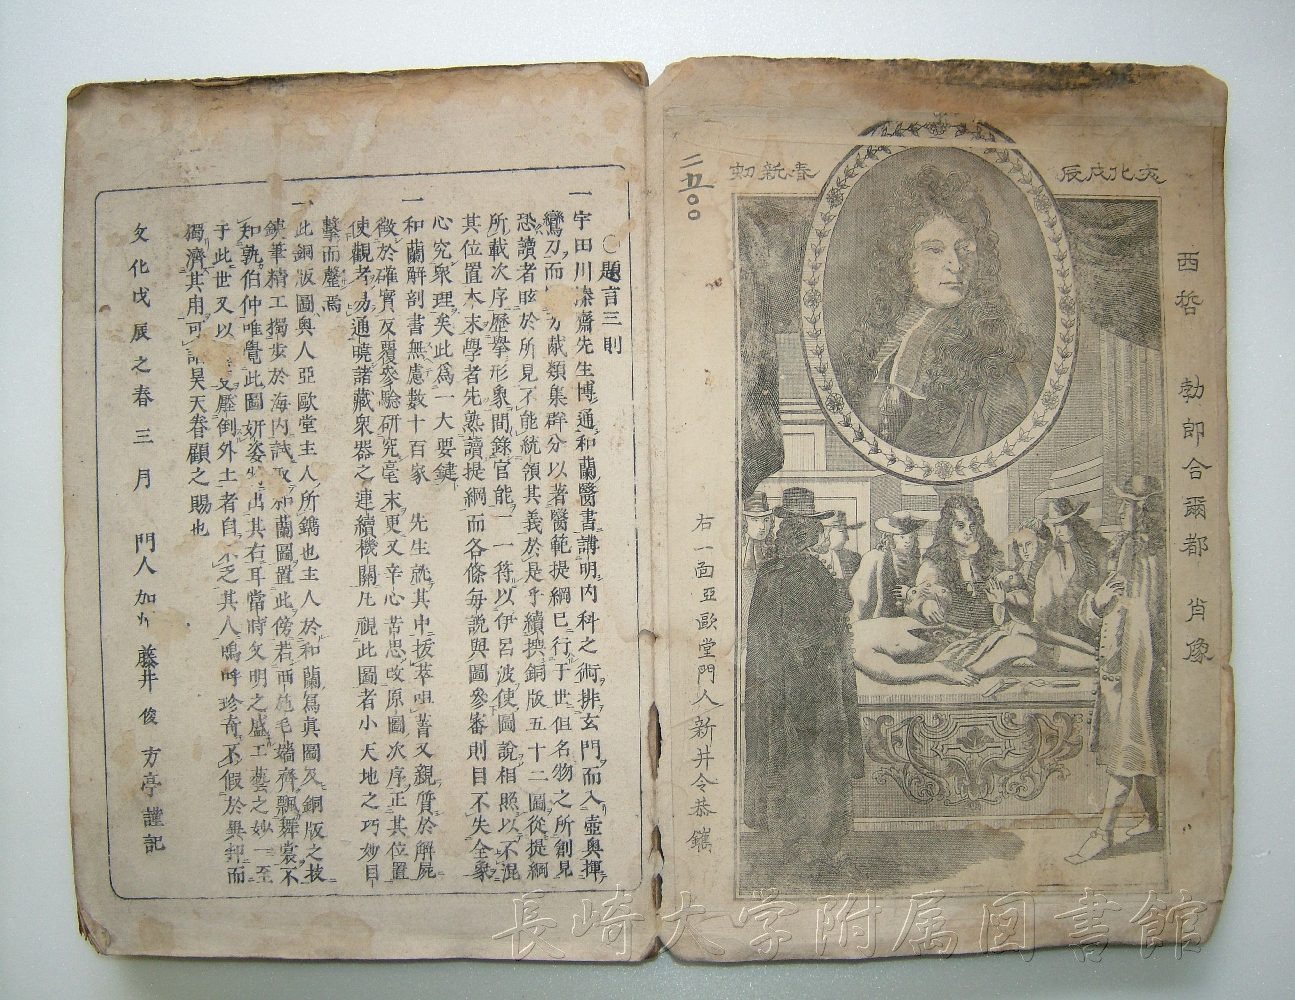 文化戊辰
春新刻
西哲 勃郎合爾都 肖像
右一面亞歐堂門人新井令恭鐫
二五〇〇
〇題言三則
一 宇田川榛齋先生博通和蘭醫書講明内科之術排玄門而入壺奥揮
鸞刀而 類集群分以著醫範提綱已行于世但名物之所創見
恐讀者眩於所見不能統領其義於是乎續撰銅版五十二圖從提綱
所載次序歷擧形象間錄官能一一符以伊呂波使圖說相照以不混
其位置本末學者先熟讀提綱而各條每說與圖參審則目不失全象
心究衆理矣此爲一大要鍵
一 和蘭解剖書無慮數十百家 先生就其中拔萃咀菁又親質於解屍
徵於確實反覆參驗研究毫末更又辛心苦思改原圖次序正其位置
使觀者易通曉諸藏衆器之連續機關凡視此圖者小天地之巧妙目
擊而 焉
一 此銅版圖與人亞歐堂主人所鐫也主人於和蘭寫眞圖及銅版之技
鏤筆精工獨步於海内試取和蘭圖置此傍若西施毛嬙齊飄舞裳不
知孰伯仲唯覺此圖妍姿 出其右耳當時文明之盛工藝之妙一至
于此世又以 壓倒外土者自不乏其人嗚呼珍奇不假於異邦而
獨濟其用可謂昊天眷顧之賜也
文化戊辰之春三月 門人 藤井俊 方亭謹記
長崎大学附属図書館